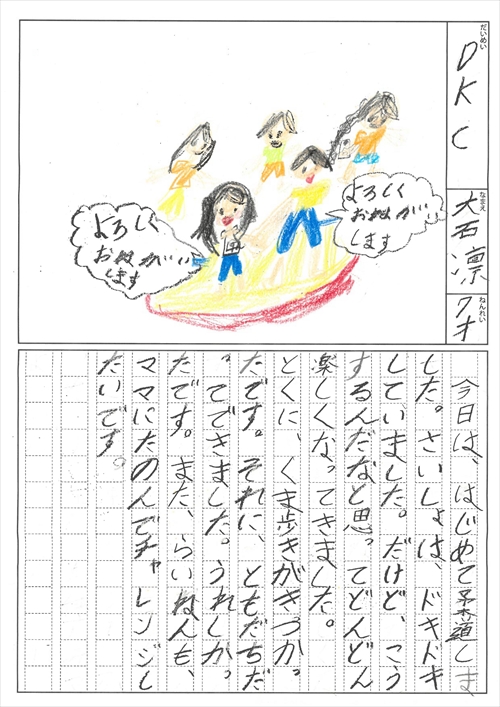 だいめい
DKC
なまえ
大石凛
ねんれい
7才
よろしく
おねがい
します
よろしく
おねがい
します
今日は、はじめて柔道しま
した。さいしょは、ドキドキ
していました。だけど、こう
するんだなと思ってどんどん
楽しくなってきました。
とくに、くま歩きがきつかっ
たです。それに、ともだちだ
ってできました。うれしかっ
たです。また、らいねんも、
ママにたのんでチャレンジし
たいです。